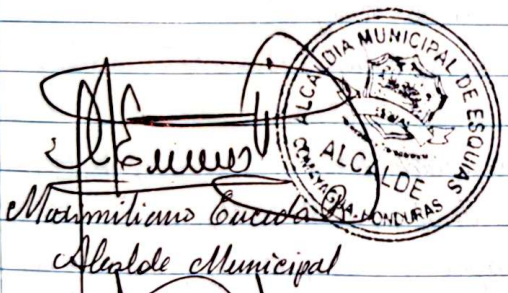 ALCALDIA MUNICIPAL DE ESQUIAS
ALCALDE
COMAYAGUA, HONDURAS
Maximiliano
Alcalde Municipal